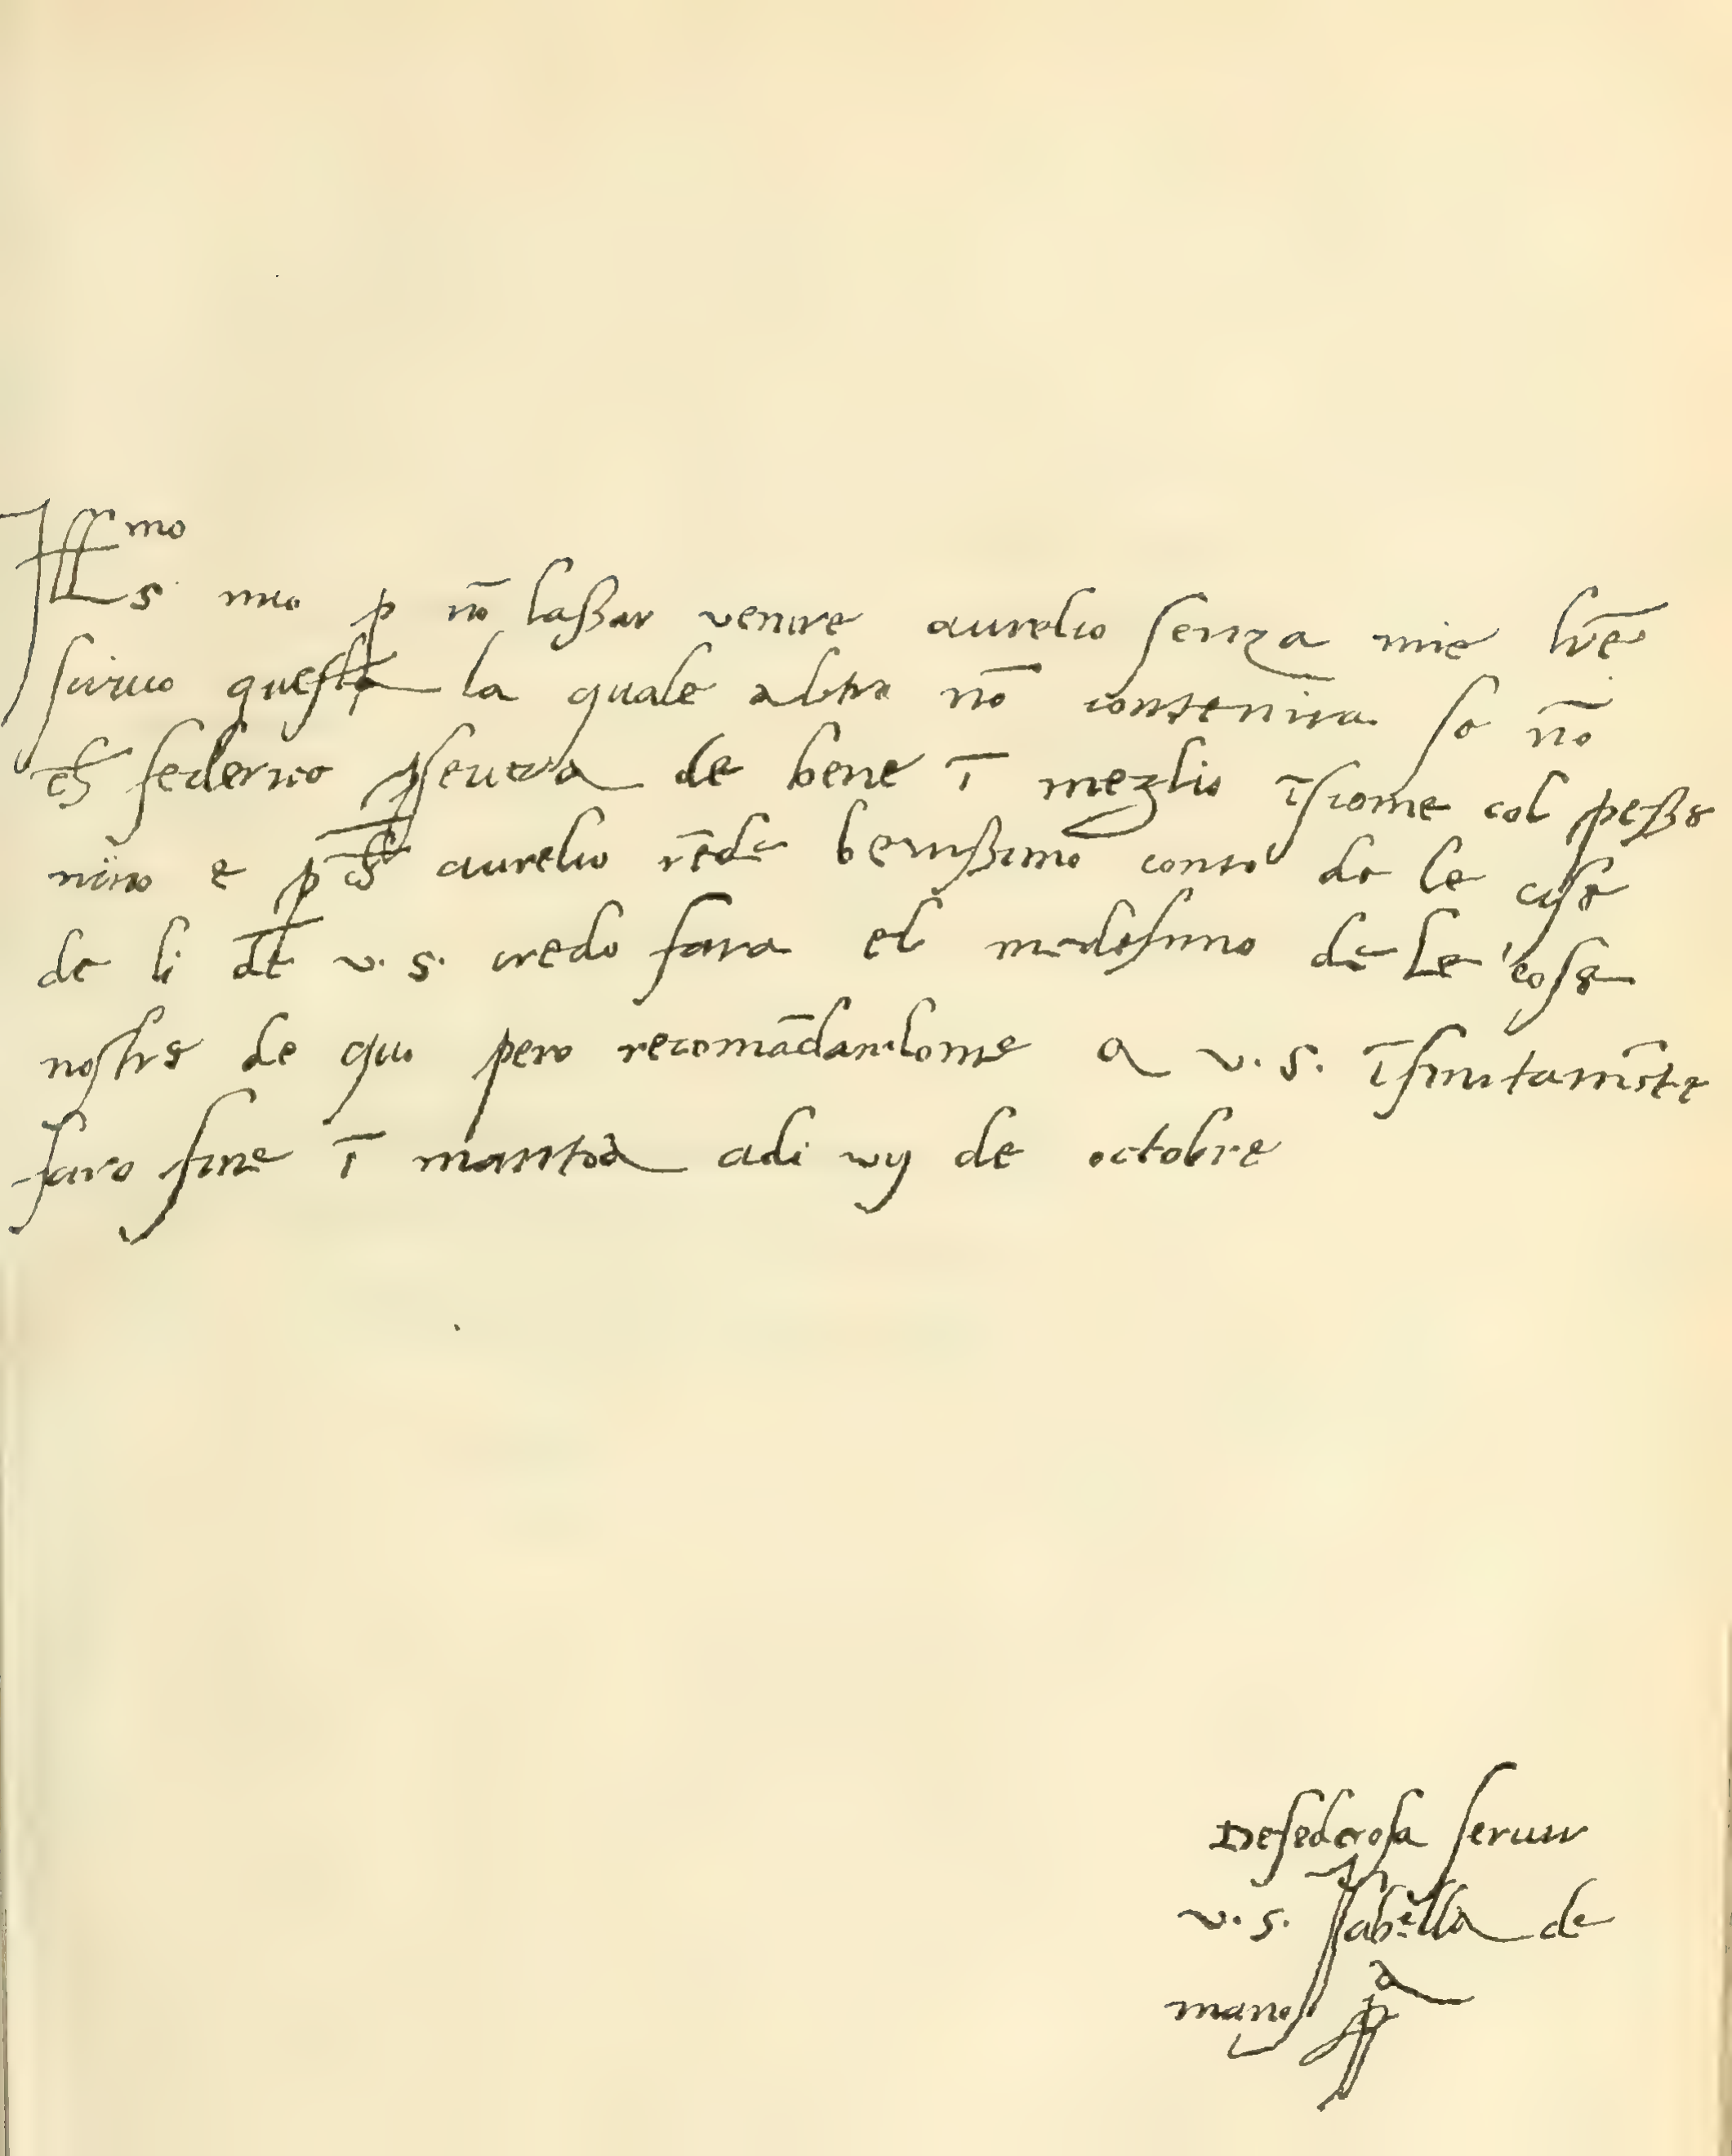 Ill mo
S mio p nō laßar venire aurelio senza mie lrē
scrivo questa la quale altro nō contenira se nō
ch federico pseuera de bene ī meglio īsieme col peßo
nr̄o e p ch aurelio rēde benißimo conto de le cose
de li de v. s. credo fara el medesimo de le cose
nostre de qui pero recomādandome a v. s. īfinitamēte
faro fine ī mantoa adi vij de octobre
Desederosa servir
v. s. Isabella de
mano pp a